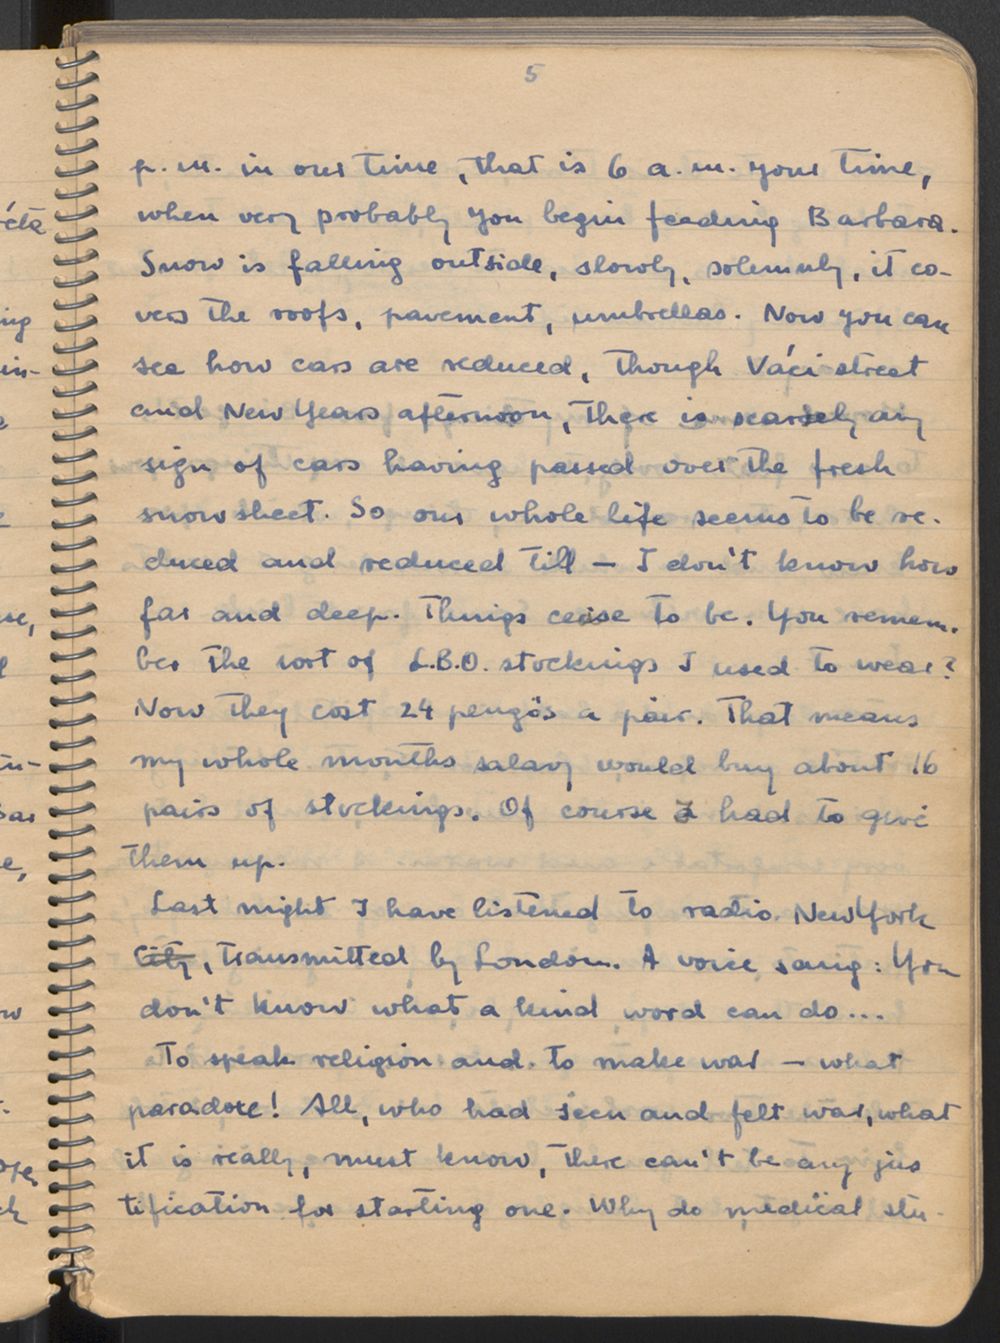 5
p. m. in our time, that is 6 a. m. your time,
when very probably you begin feeding Barbara.
Snow is falling outside, slowly, solemnly, it co-
vers the roofs, pavement, umbrellas. Now you can
see how cars are reduced, though Váci street
and New Years afternoon, there is scarsely any
sign of cars having passed over the fresh
snow sheet. So our whole life seems to be re-
duced and reduced till – I don't know how
far and deep. Things cease to be. You remem-
ber the sort of L.B.O. stockings I used to wear?
Now they cost 24 pengös a pair. That means
my whole months salary would buy about 16
pairs of stockings. Of course I had to give
them up.
Last night I have listened to radio. New York
City, transmitted by London. A voice sang: You
don't know what a kind word can do...
To speak religion and to make war – what
paradoxe! All, who had seen and felt war, what
it is really, must know, there can't be any jus
tification for starting one. Why do medical stu-